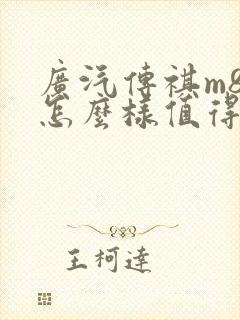 廣汽傳祺m8
怎麼樣值得
王柯達